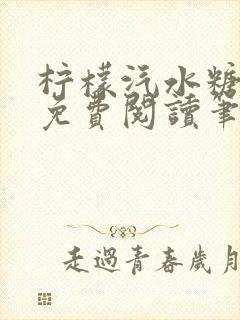 柠檬汽水糖
免費閱讀筆
走過青春歲月